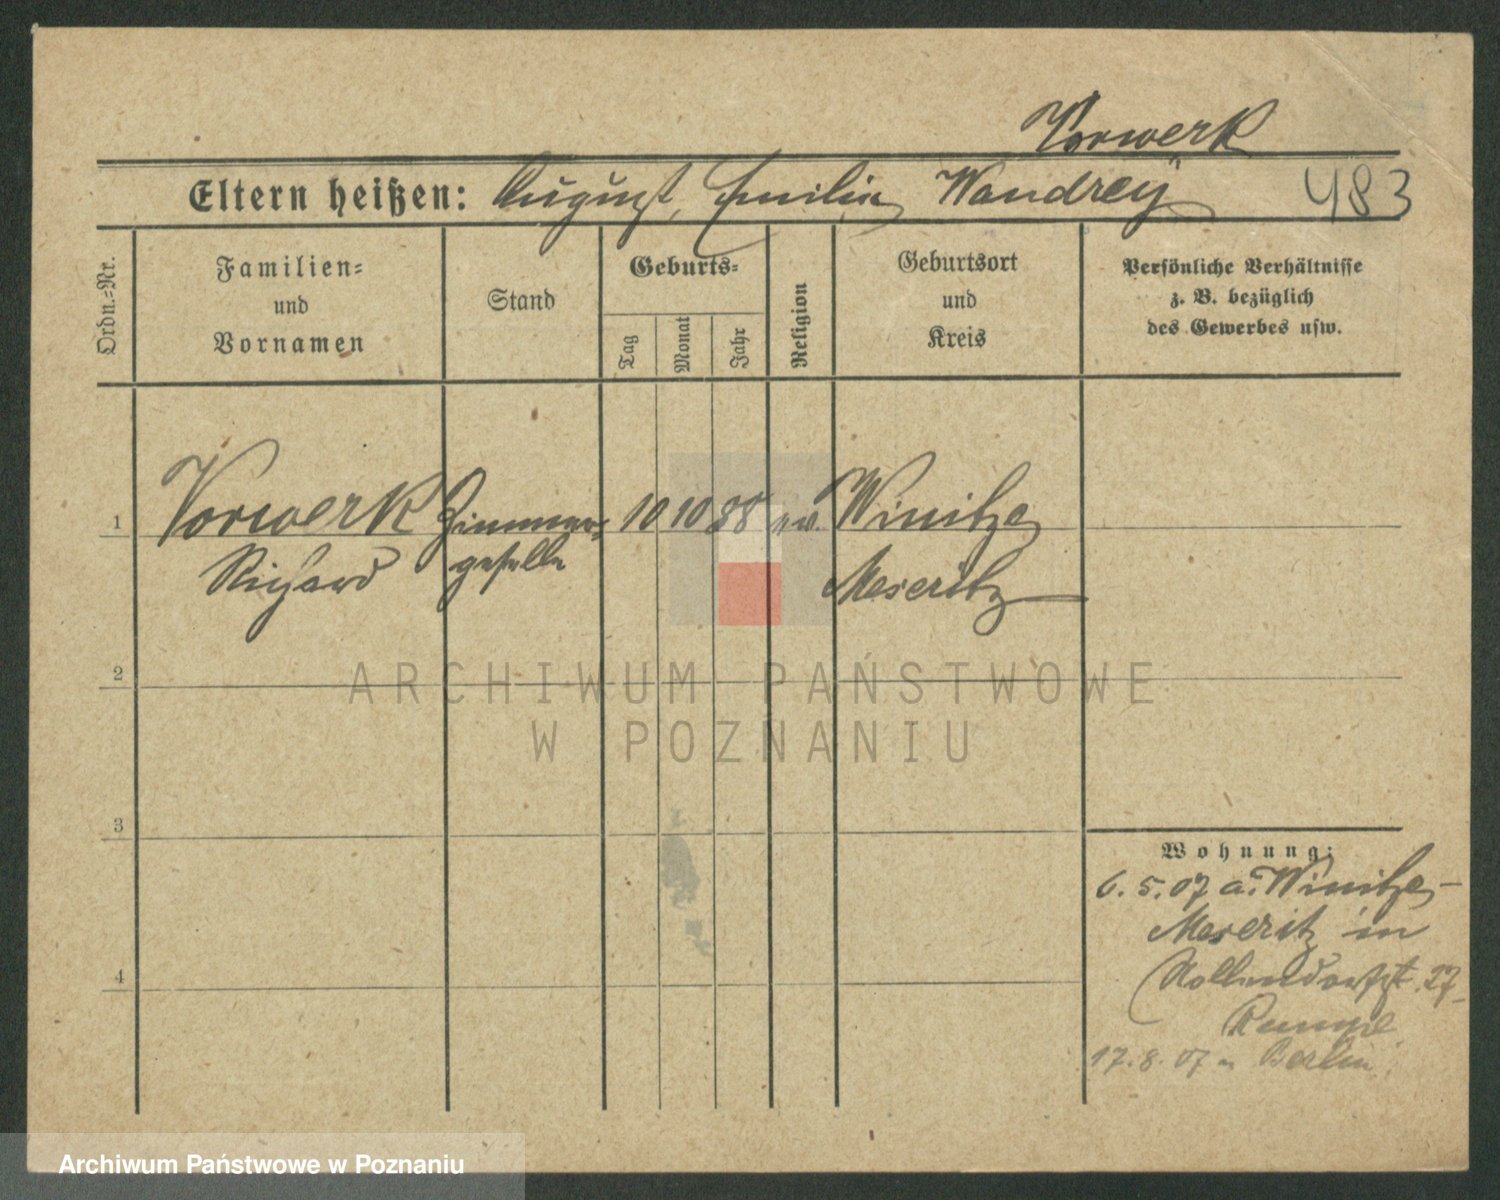 Vorwerk
Eltern heißen: August, Emilie Wandrey 483
Ordn.-Nr.
Familien-
und
Vornamen
Stand
Geburts-
Tag
Monat
Jahr
Religion
Geburtsort
und
Kreis
Persönliche Verhältnisse
z. B. bezüglich
des Gewerbes usw.
1 Vorwerk Zimmer- 10 10 88 ev. Winitze
Richard geselle Meseritz
2
ARCHIWUM PAŃSTWOWE
W POZNANIU
3
Wohnung:
6. 5. 07 a. Winitze-
Meseritz in
Nollendorfst. 27
4
17. 8. 07 n Berlin
Archiwum Państwowe w Poznaniu